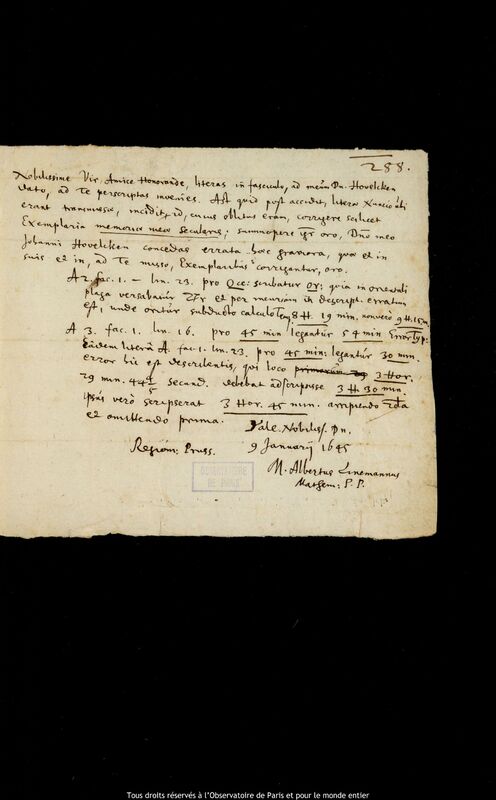 288.
Nobilissime Vir, Amice Honorande, literas in fasciculo, ad meum Dn. Hovelcken
dato, ad Te perscriptas invenies. Ast quid post accidit, literæ
erant transmissæ, incidit id, cujus oblitus eram, corrigere scilicet
Exemplaria memoriæ meæ secularis; summopere igr oro, Dno meo
Johanni Hovelcken concedas errata hæc graviora, quæ et in
suis et in, ad Te misso, Exemplaribus corrigantur, oro.
A 2. fac. 1. - lin. 23. pro Occ: scribatur Or: quia in orientali
plaga versabatur et per incuriam in descript. erratum
est, unde oritur subducto calculo 8 H. 19 min, non vero 9 H. 15 m.
A 3. fac. 1. lin. 16. pro 45 min legantur 54 min Error typ:
Eadem litera A fac. 1. lin. 23. pro 45 min: legantur 30 min.
error hic est describentis, qui loco 3 Hor.
29 min. 44 1/5 secund. debebat adscripsisse 3 H. 30 min.
ipsus verò scripserat 3 Hor. 45 min. arripiendo
et omittendo prima. Vale Nobiliss. Dn.
Regiom: Pruss. 9 Januarij 1645
M. Albertus Linemannus
Mathem: P. P.
OBSERVATOIRE
DE PARIS
Tous droits réservés à l'Observatoire de Paris et pour le monde entier